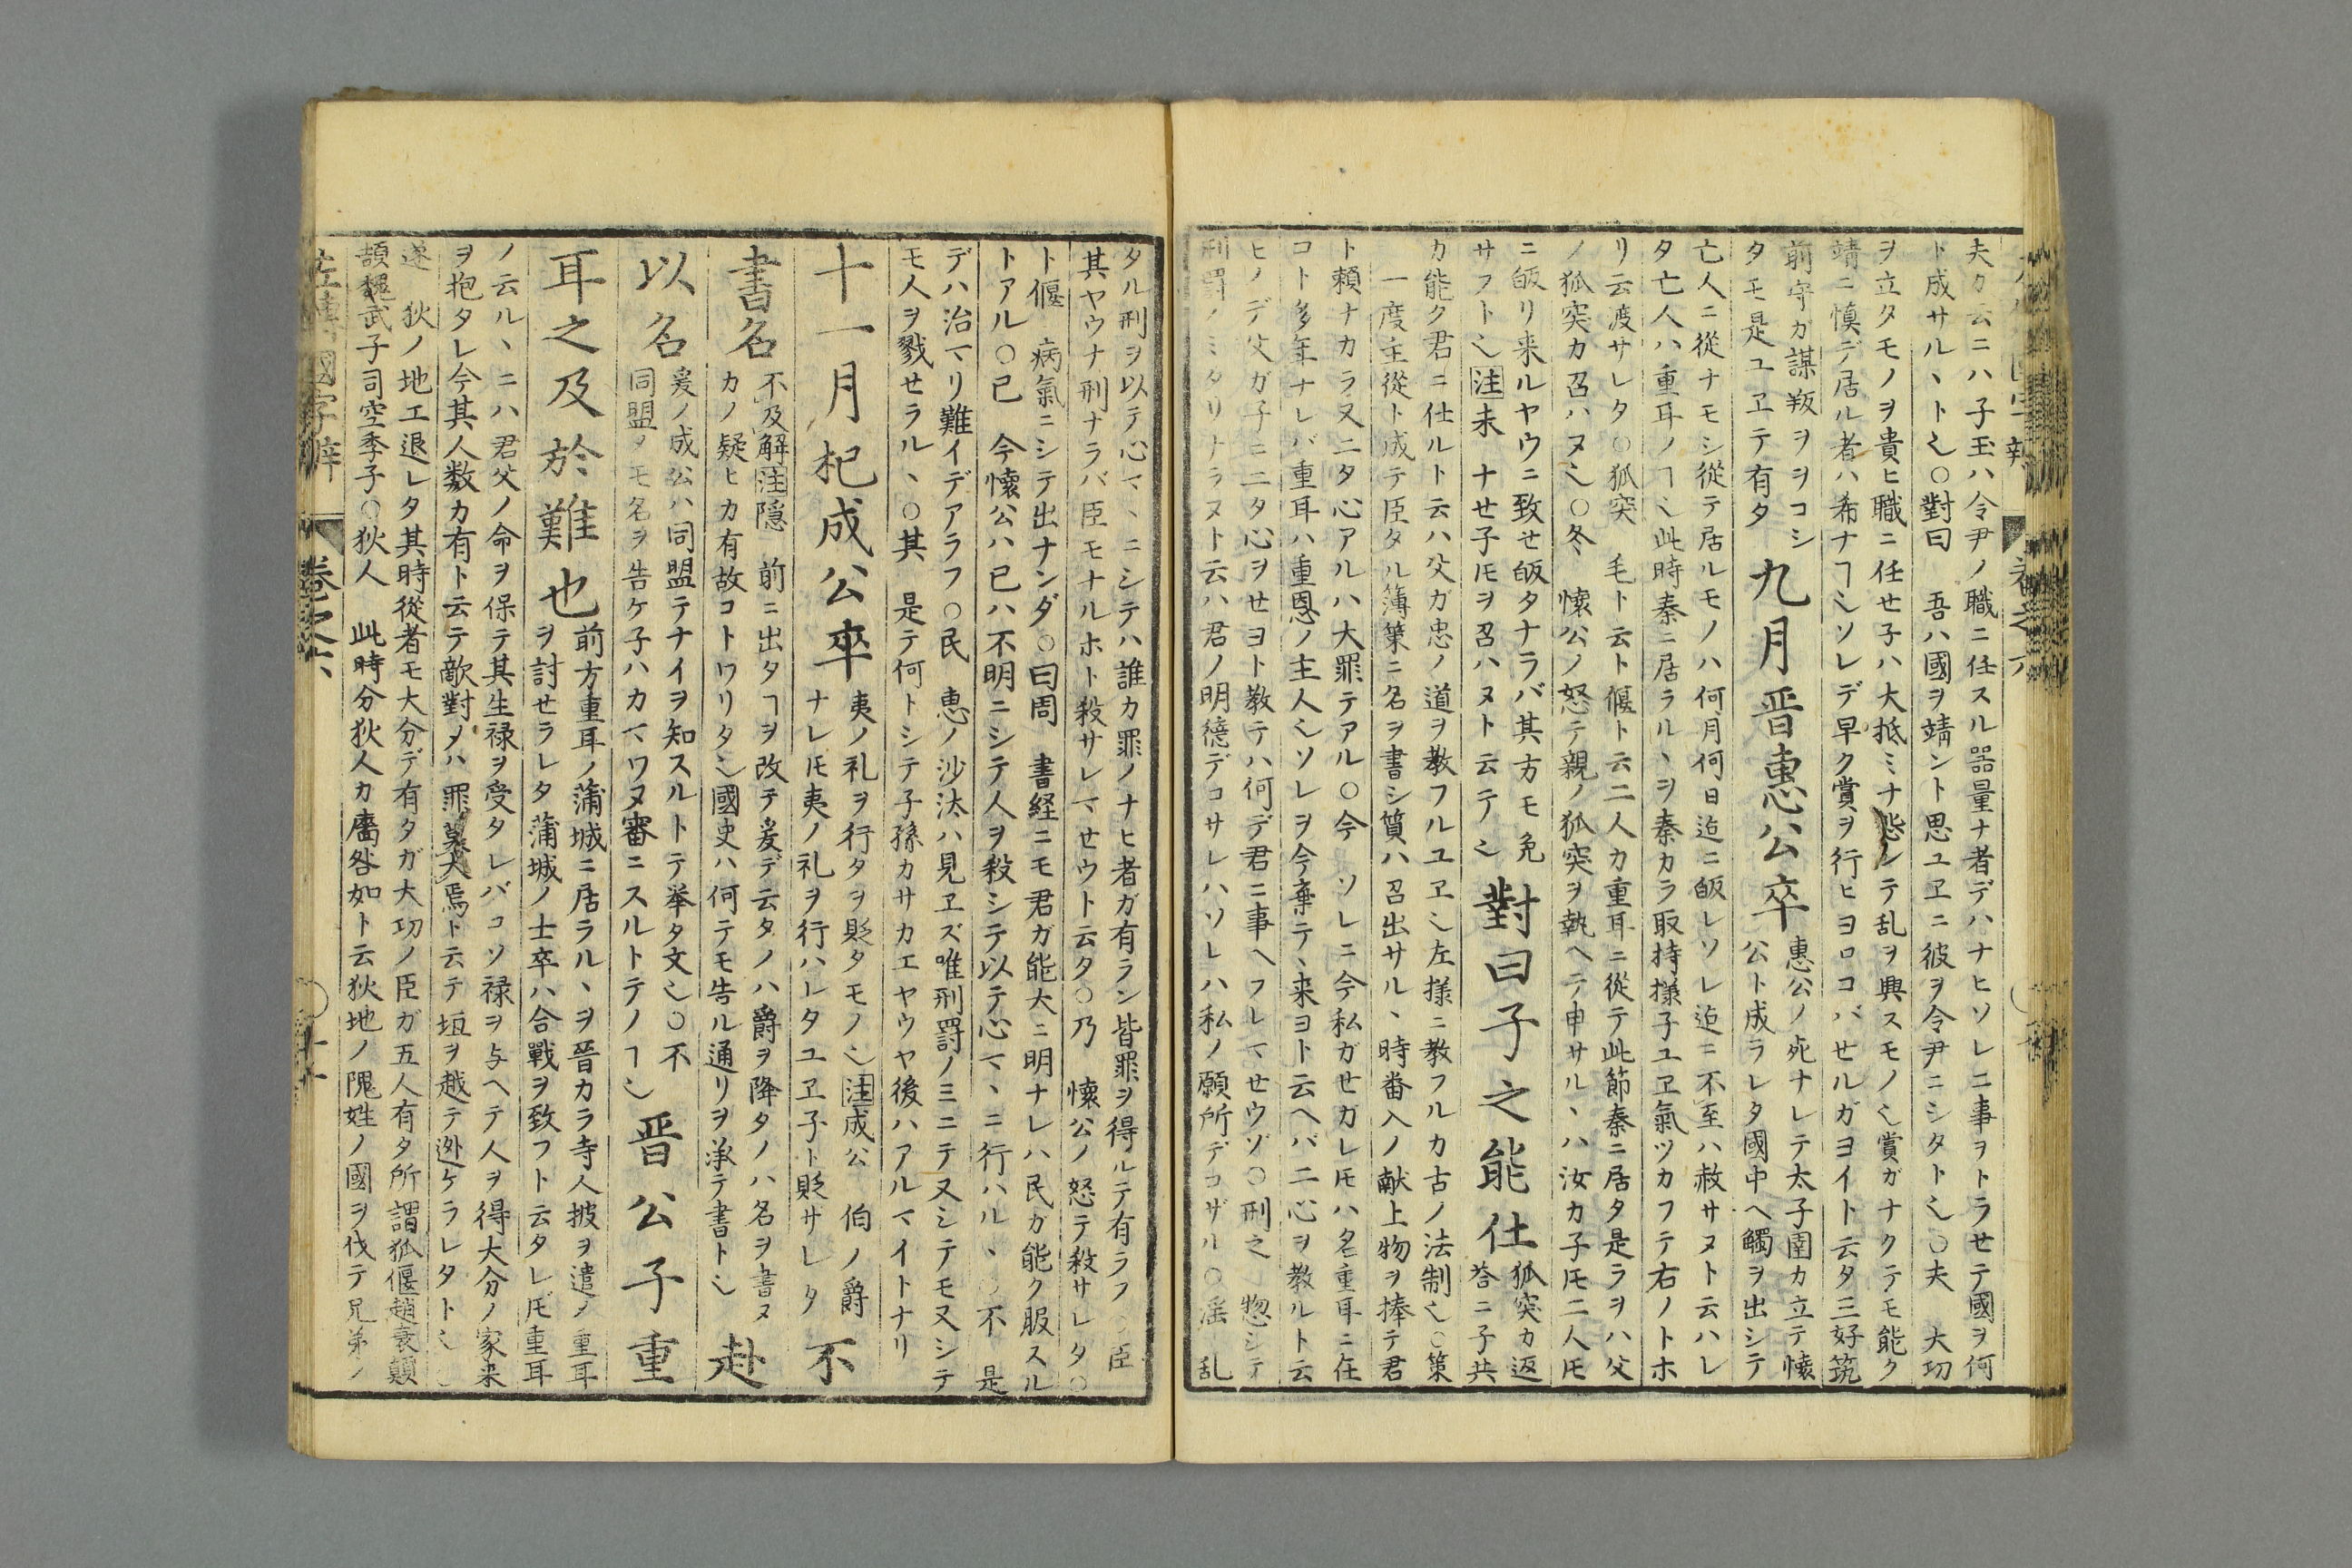 夫カ云ニハ子玉ハ令尹ノ職ニ任スル器量ナ者デハナヒソレニ事ヲトラせテ國ヲ何
ト成サル、トヘ○對曰 吾ハ國ヲ靖ント思ユヱニ彼ヲ令尹ニシタトヘ○夫 大功
ヲ立タモノヲ貴ヒ職ニ任せ子ハ大抵ミナ怨ンテ乱ヲ興スモノヘ賞ガナクテモ能ク
靖ニ慎デ居ル者ハ希ナヿヘソレデ早ク賞ヲ行ヒヨロコバせルガヨイト云タ三好筑
前守ガ謀叛ヲヲコシ
タモ是ユヱテ有タ
九月晋惠公卒
惠公ノ死ナレテ太子圉カ立テ懐
公ト成ラレタ國中ヘ觸ヲ出シテ
亡人ニ從ナモシ從テ居ルモノハ何月何日迠ニ皈レソレ迠ニ不至ハ赦サヌト云ハレ
タ亡人ハ重耳ノヿヘ此時秦ニ居ラル、ヲ秦カラ取持様子ユヱ氣ツカフテ右ノトホ
リ云渡サレタ○狐突 毛ト云ト偃ト云二人カ重耳ニ從テ此節秦ニ居タ是ラヲハ父
ノ狐突カ召ハヌヘ○冬 懐公ノ怒テ親ノ狐突ヲ執ヘテ申サル、ハ汝カ子𪜈二人𪜈
ニ皈リ来ルヤウニ致せ皈タナラバ其方モ免
サフトヘ注未 ナせ子𪜈ヲ召ハヌト云テヘ
對曰子之能仕
狐突カ返
荅ニ子共
カ能ク君ニ仕ルト云ハ父カ忠ノ道ヲ教フルユヱヘ左様ニ教フルカ古ノ法制ヘ○策
一度主從ト成テ臣タル簿策ニ名ヲ書シ質ハ召出サル、時番入ノ献上物ヲ捧テ君
ト頼ナカラ又二タ心アルハ大罪テアル○今 ソレニ今私ガせガレ𪜈ハ名重耳ニ在
コト多年ナレバ重耳ハ重恩ノ主人ヘソレヲ今棄テ、来ヨト云ヘバ二心ヲ教ルト云
ヒノデ父ガ子ニ二タ心ヲせヨト教テハ何デ君ニ事ヘフレマせウゾ○刑之 惣シテ
刑罰ノミタリナラヌト云ハ君ノ明徳デコサレハソレハ私ノ願所デコザル○滛 乱
タル刑ヲ以テ心マヽニシテハ誰カ罪ノナヒ者ガ有ラン皆罪ヲ得ルテ有ラフ○臣
其ヤウナ刑ナラバ臣モナルホト殺サレマせウト云タ○乃 懐公ノ怒テ殺サレタ○
ト偃 病氣ニシテ出ナンダ○曰周 書経ニモ君ガ能大ニ明ナレハ民ガ能ク服スル
トアル○已 今懐公ハ已ハ不明ニシテ人ヲ殺シテ以テ心マヽニ行ハル、○不 是
デハ治マリ難イデアラフ○民 惠ノ沙汰ハ見ヱズ唯刑罰ノミニテ又シテモ又シテ
モ人ヲ戮せラル、○其 是テ何トシテ子孫カサカエヤウヤ後ハアルマイトナリ
十一月杞成公卒
夷ノ礼ヲ行タヲ貶タモノヘ注成公 伯ノ爵
ナレ𪜈夷ノ礼ヲ行ハレタユヱ子ト貶サレタ
不
書名
不及解注隠 前ニ出タヿヲ改テ爰デ云タノハ爵ヲ降タノハ名ヲ書ヌ
カノ疑ヒカ有故コトワリタヘ國史ハ何テモ告ル通リヲ承テ書トヘ
赴
以名
爰ノ成公ハ同盟テナイヲ知スルトテ挙タ文ヘ○不
同盟ノモ名ヲ告ケ子ハカマワヌ審ニスルトテノヿヘ
晋公子重
耳之及於難也
前方重耳ノ蒲城ニ居ラル、ヲ晋カラ寺人披ヲ遣ノ重耳
ヲ討せラレタ蒲城ノ士卒ハ合戰ヲ致フト云タレ𪜈重耳
ノ云ル、ニハ君父ノ命ヲ保テ其生禄ヲ受タレバコソ禄ヲ与ヘテ人ヲ得大分ノ家来
ヲ抱タレ今其人数カ有ト云テ敵對メハ罪莫大焉ト云テ垣ヲ越テ迯ケラレタトヘ○
遂 狄ノ地エ退レタ其時從者モ大分デ有タガ大功ノ臣ガ五人有タ所謂狐偃趙衰顛
頡魏武子司空季子○狄人 此時分狄人カ廧咎如ト云狄地ノ隗姓ノ國ヲ伐テ兄弟ノ
左傳國字辯 巻之六 ○十一